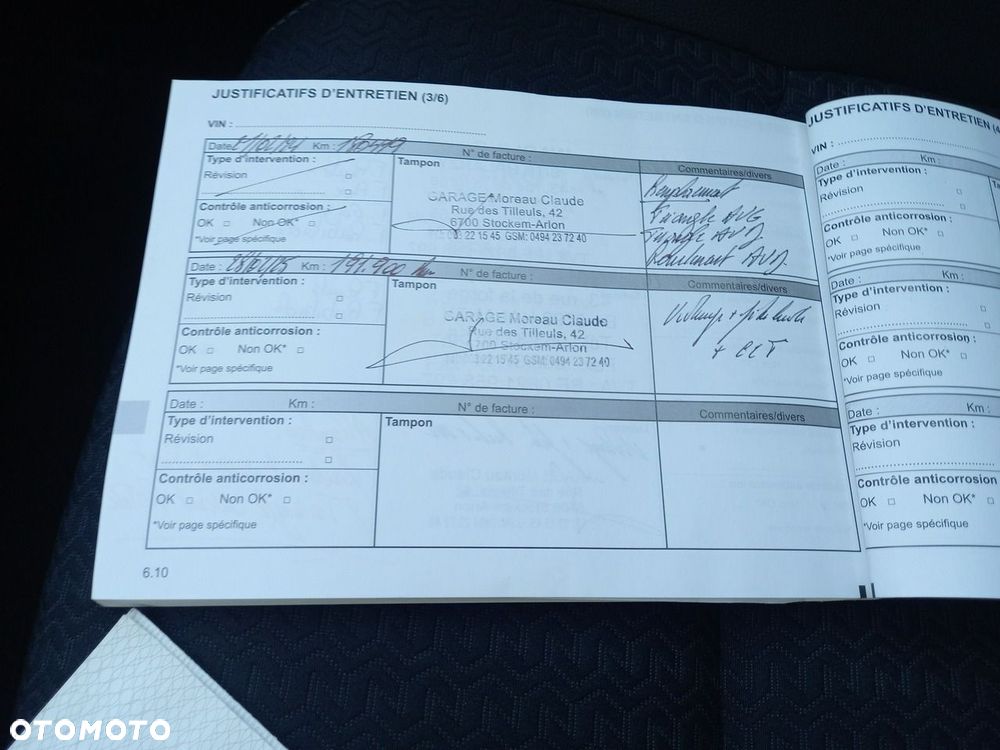 JUSTIFICATIFS D'ENTRETIEN (3/6)
VIN :
Date Km :
N° de facture :
Commentaires/divers
Type d'intervention :
Révision
Contrôle anticorrosion :
OK Non OK*
*Voir page spécifique
Tampon
GARAGE Moreau Claude
Rue des Tilleuls, 42
6700 Stockem-Arlon
22 15 45 GSM: 0494 23 72 40
Remplacement
Triangle AVG
Triangle AVD
Roulement AVD.
Date : Km : 191.900 Km
N° de facture :
Commentaires/divers
Type d'intervention :
Révision
Contrôle anticorrosion :
OK Non OK*
*Voir page spécifique
Tampon
GARAGE Moreau Claude
Rue des Tilleuls, 42
6700 Stockem-Arlon
22 15 45 GSM: 0494 23 72 40
+ CCT
Date : Km :
N° de facture :
Commentaires/divers
Type d'intervention :
Révision
Contrôle anticorrosion :
OK Non OK*
*Voir page spécifique
Tampon
6.10
JUSTIFICATIFS D'ENTRETIEN (4
VIN :
Date : Km :
Type d'intervention :
Révision
Contrôle anticorrosion :
OK Non OK*
*Voir page spécifique
Date : Km :
Type d'intervention :
Révision
Contrôle anticorrosion :
OK Non OK*
*Voir page spécifique
Date : Km :
Type d'intervention :
Révision
Contrôle anticorrosion
OK Non OK*
*Voir page spécifique
OTOMOTO